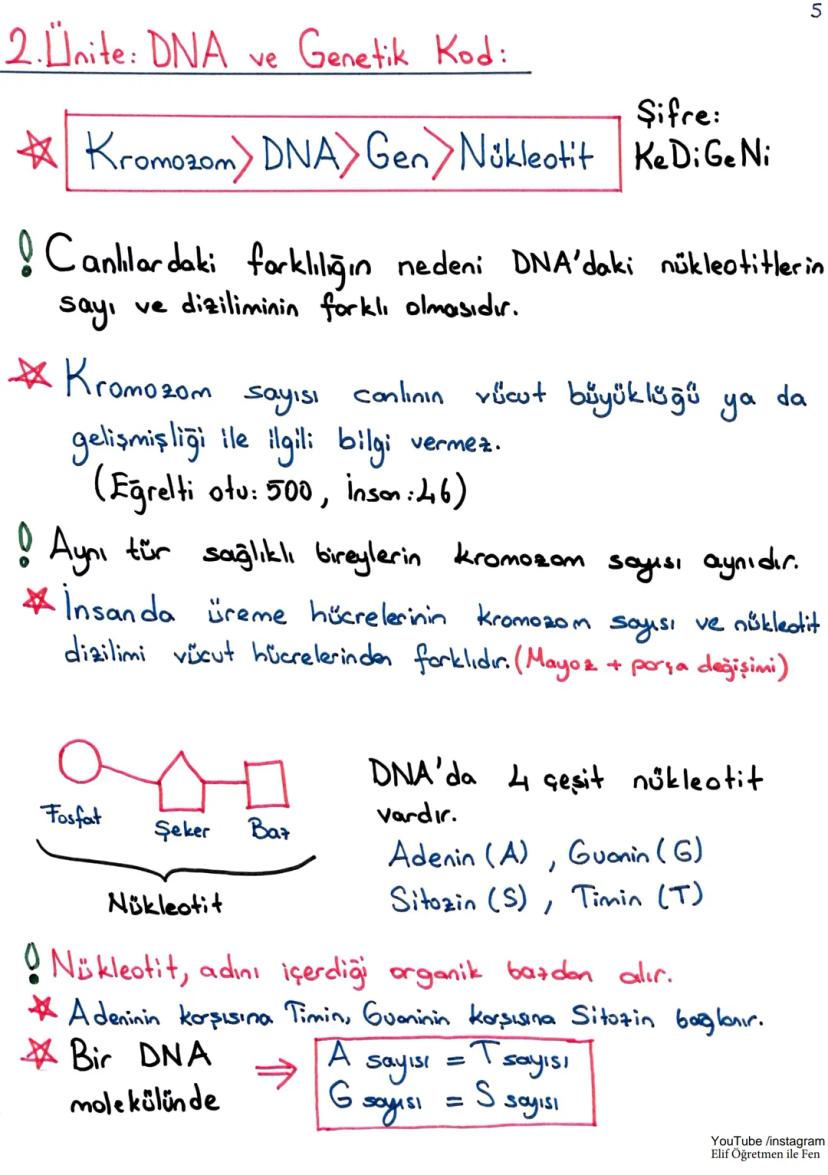 5
2.Ünite: DNA ve Genetik Kod:
Kromozom > DNA > Gen > Nükleotit
Şifre:
KeDiGeNi
! Canlılardaki farklılığın nedeni DNA'daki nükleotitlerin
sayı ve diziliminin farklı olmasıdır.
Kromozom sayısı canlının vücut büyüklüğü ya da
gelişmişliği ile ilgili bilgi vermez.
(Eğrelti otu: 500, İnsan: 46)
! Aynı tür sağlıklı bireylerin kromozom sayısı aynıdır.
İnsanda üreme hücrelerinin kromozom sayısı ve nükleotit
dizilimi vücut hücrelerinden farklıdır. (Mayoz + parça değişimi)
Fosfat Şeker Baz
Nükleotit
DNA'da 4 çeşit nükleotit
vardır.
Adenin (A), Guanin (G)
Sitozin (S), Timin (T)
! Nükleotit, adını içerdiği organik bazdan alır.
Adeninin karşısına Timin, Guaninin karşısına Sitozin bağlanır.
Bir DNA
molekülünde
A sayısı = T sayısı
G sayısı = S sayısı
YouTube /instagram
Elif Öğretmen ile Fen